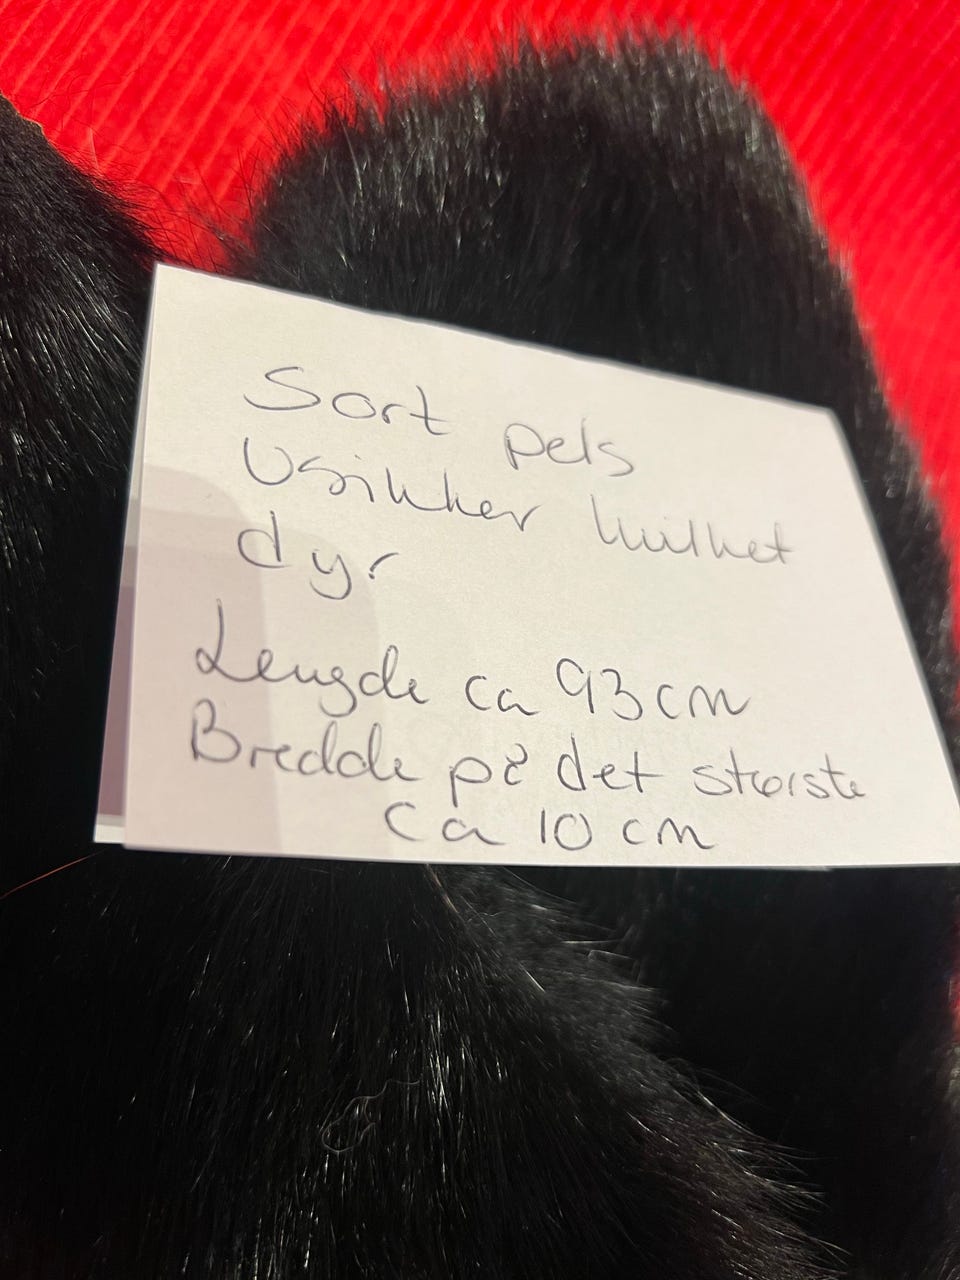 Sort pels
Usikker hvilket
dyr
Lengde ca 93 cm
Bredde på det største
ca 10 cm